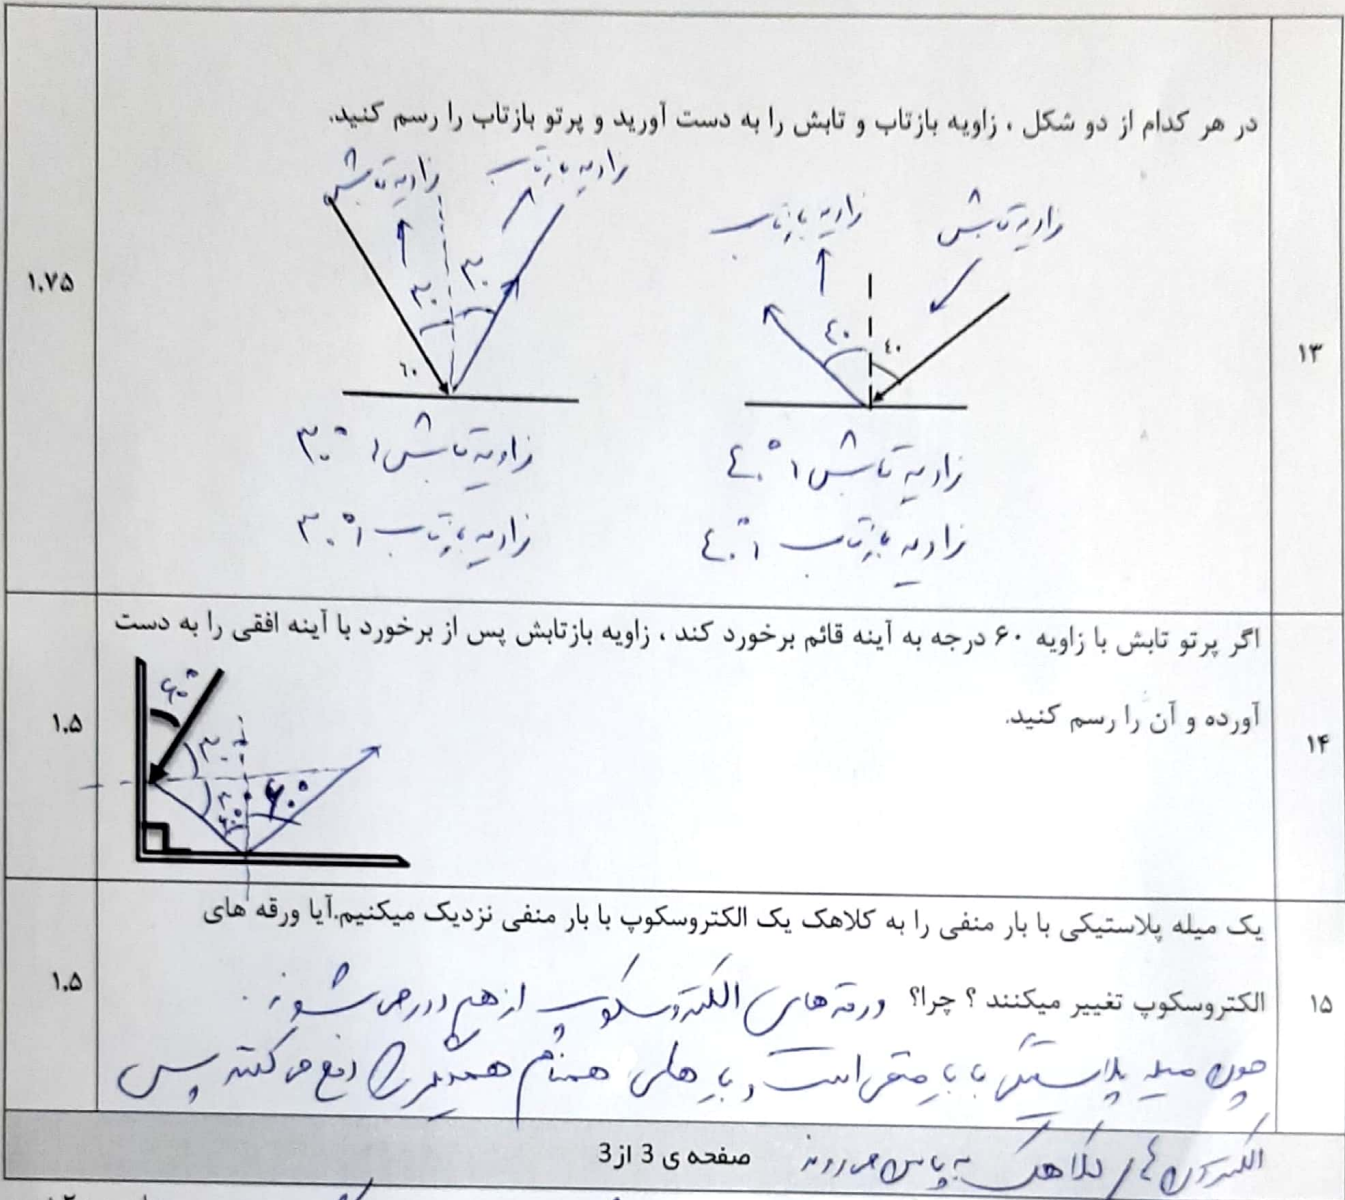 در هر کدام از دو شکل ، زاویه بازتاب و تابش را به دست آورید و پرتو بازتاب را رسم کنید.
۱۳
۱.۷۵
زاویه تابش
زاویه بازتاب
زاویه بازتاب
زاویه تابش
۳۰
۳۰
۶۰
۴۰
۴۰
زاویه تابش: ۳۰°
زاویه تابش: ۴۰°
زاویه بازتاب: ۳۰°
زاویه بازتاب: ۴۰°
اگر پرتو تابش با زاویه ۶۰ درجه به آینه قائم برخورد کند ، زاویه بازتابش پس از برخورد با آینه افقی را به دست
آورده و آن را رسم کنید.
۱۴
۱.۵
۶۰°
۳۰
۳۰
۶۰°
۶۰°
یک میله پلاستیکی با بار منفی را به کلاهک یک الکتروسکوپ با بار منفی نزدیک میکنیم.آیا ورقه های
الکتروسکوپ تغییر میکنند ؟ چرا؟ ورقه های الکتروسکوپ از هم دور می شوند.
۱۵
۱.۵
چون میله پلاستیکی با بار منفی است و بار های همنام همدیگر را دفع می کنند پس
الکترون های کلاهک به پایین می روند
صفحه ی 3 از3